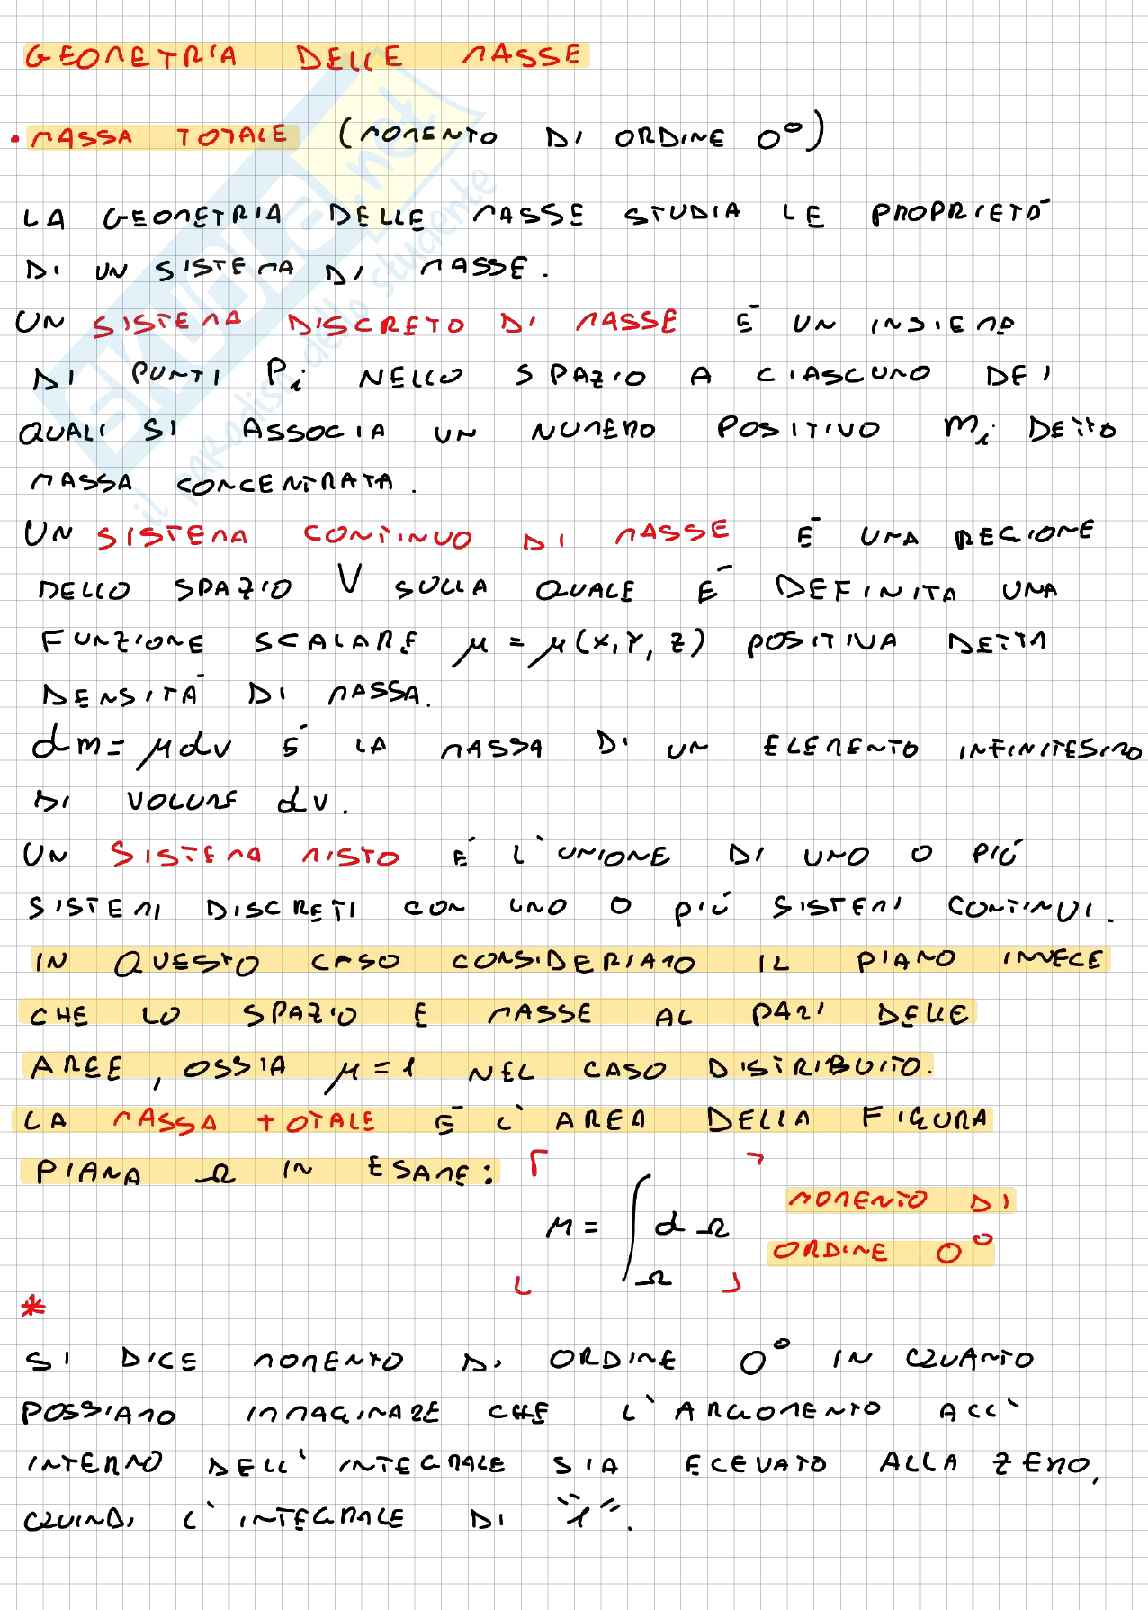 GEOMETRIA DELLE MASSE
• MASSA TOTALE (MOMENTO DI ORDINE 0°)
LA GEOMETRIA DELLE MASSE STUDIA LE PROPRIETÀ
DI UN SISTEMA DI MASSE.
UN SISTEMA DISCRETO DI MASSE È UN INSIEMA
DI PUNTI Pi NELLO SPAZIO A CIASCUNO DEI
QUALI SI ASSOCIA UN NUMERO POSITIVO mi DETTO
MASSA CONCENTRATA.
UN SISTEMA CONTINUO DI MASSE È UNA REGIONE
DELLO SPAZIO V SULLA QUALE È DEFINITA UNA
FUNZIONE SCALARE μ = μ(X,Y,Z) POSITIVA DETTA
DENSITÀ DI MASSA.
dm = μdv È LA MASSA DI UN ELEMENTO INFINITESIMO
DI VOLUME dv.
UN SISTEMA MISTO È L'UNIONE DI UNO O PIÙ
SISTEMI DISCRETI CON UNO O PIÙ SISTEMI CONTINUI.
IN QUESTO CASO CONSIDERIAMO IL PIANO INVECE
CHE LO SPAZIO E MASSE AL PARI DELLE
AREE, OSSIA μ = 1 NEL CASO DISTRIBUITO.
LA MASSA TOTALE È L'AREA DELLA FIGURA
PIANA Ω IN ESAME:
M = ∫Ω dΩ MOMENTO DI
ORDINE 0°
*
SI DICE MOMENTO DI ORDINE 0° IN QUANTO
POSSIAMO IMMAGINARE CHE L'ARGOMENTO ALL'
INTERNO DELL'INTEGRALE SIA ELEVATO ALLA ZERO,
QUINDI L'INTEGRALE DI "1".
SKUOLA.net
il paradiso dello studente